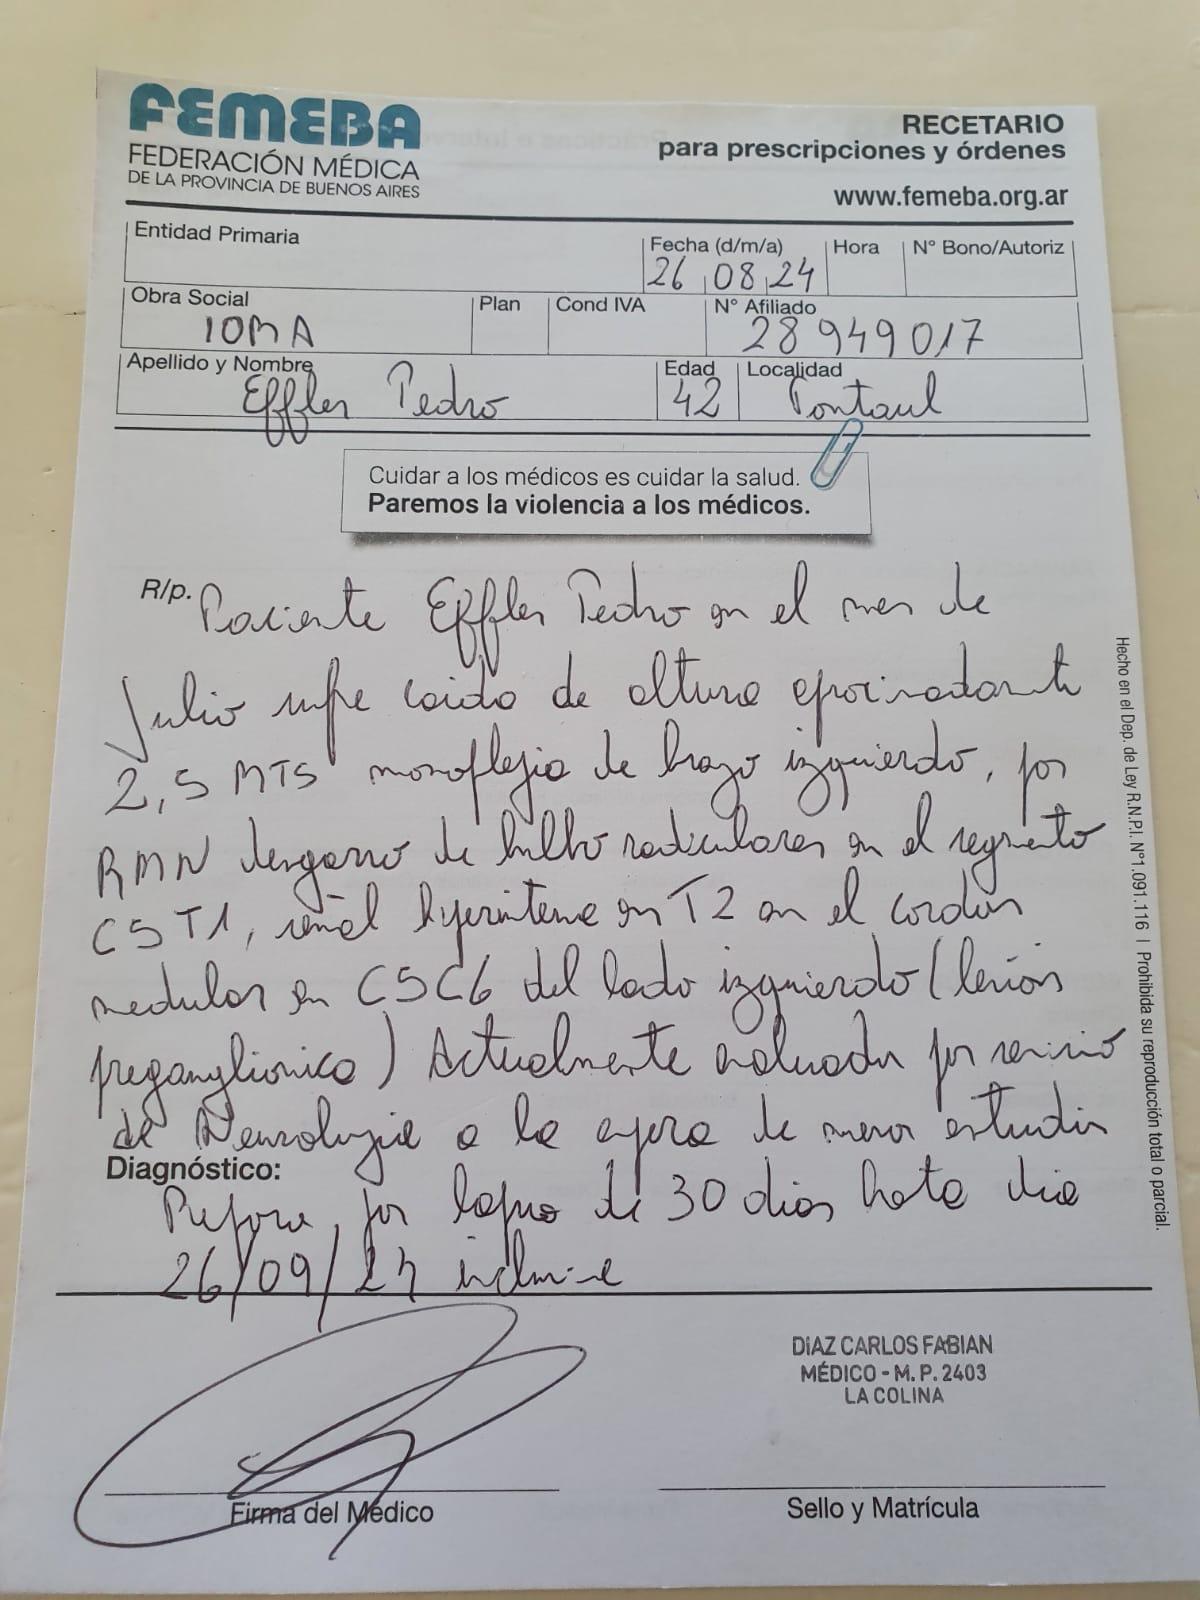 FEMEBA
FEDERACIÓN MÉDICA
DE LA PROVINCIA DE BUENOS AIRES
RECETARIO
para prescripciones y órdenes
www.femeba.org.ar
Entidad Primaria
Fecha (d/m/a) 26 08 24
Hora
N° Bono/Autoriz
Obra Social IOMA
Plan
Cond IVA
N° Afiliado 28949017
Apellido y Nombre Effler Pedro
Edad 42
Localidad Pontaul
Cuidar a los médicos es cuidar la salud.
Paremos la violencia a los médicos.
R/p. Paciente Effler Pedro en el mes de
Julio sufre caida de altura
2,5 MTS monoplejia de brazo izquierdo, por
RMN desgarro de bulbo radiculares en el segmento
C5 T1, señal hiperintensa en T2 en el cordon
medular en C5C6 del lado izquierdo (lesion
preganglionica) Actualmente evaluado por servicio
de Neurologia a la espera de nuevos estudios
Diagnóstico:
Refiere, por lapso de 30 dias hasta dia
26/09/24 inclusive
Firma del Médico
DIAZ CARLOS FABIAN
MÉDICO - M. P. 2403
LA COLINA
Sello y Matrícula
Hecho en el Dep. de Ley R.N.P.I. N°1.091.116 | Prohibida su reproducción total o parcial.